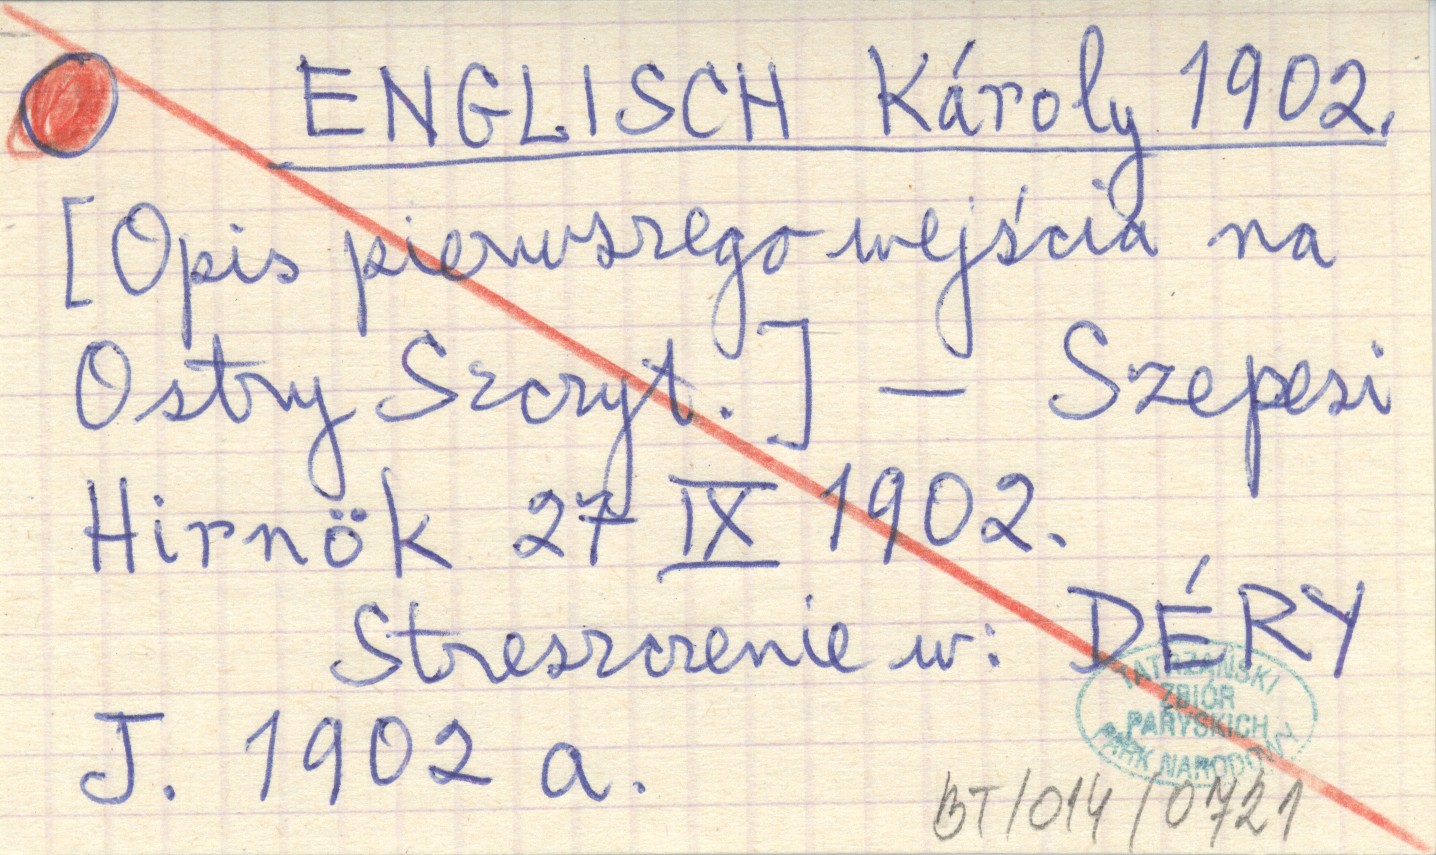 ENGLISCH Károly 1902.
[Opis pierwszego wejścia na
Ostry Szczyt.] — Szepesi
Hirnök 27 IX 1902.
Streszczenie w: DÉRY
J. 1902 a.
TATRZAŃSKI
ZBIÓR
PARYSKICH
PARK NARODOWY
BT/014/0721